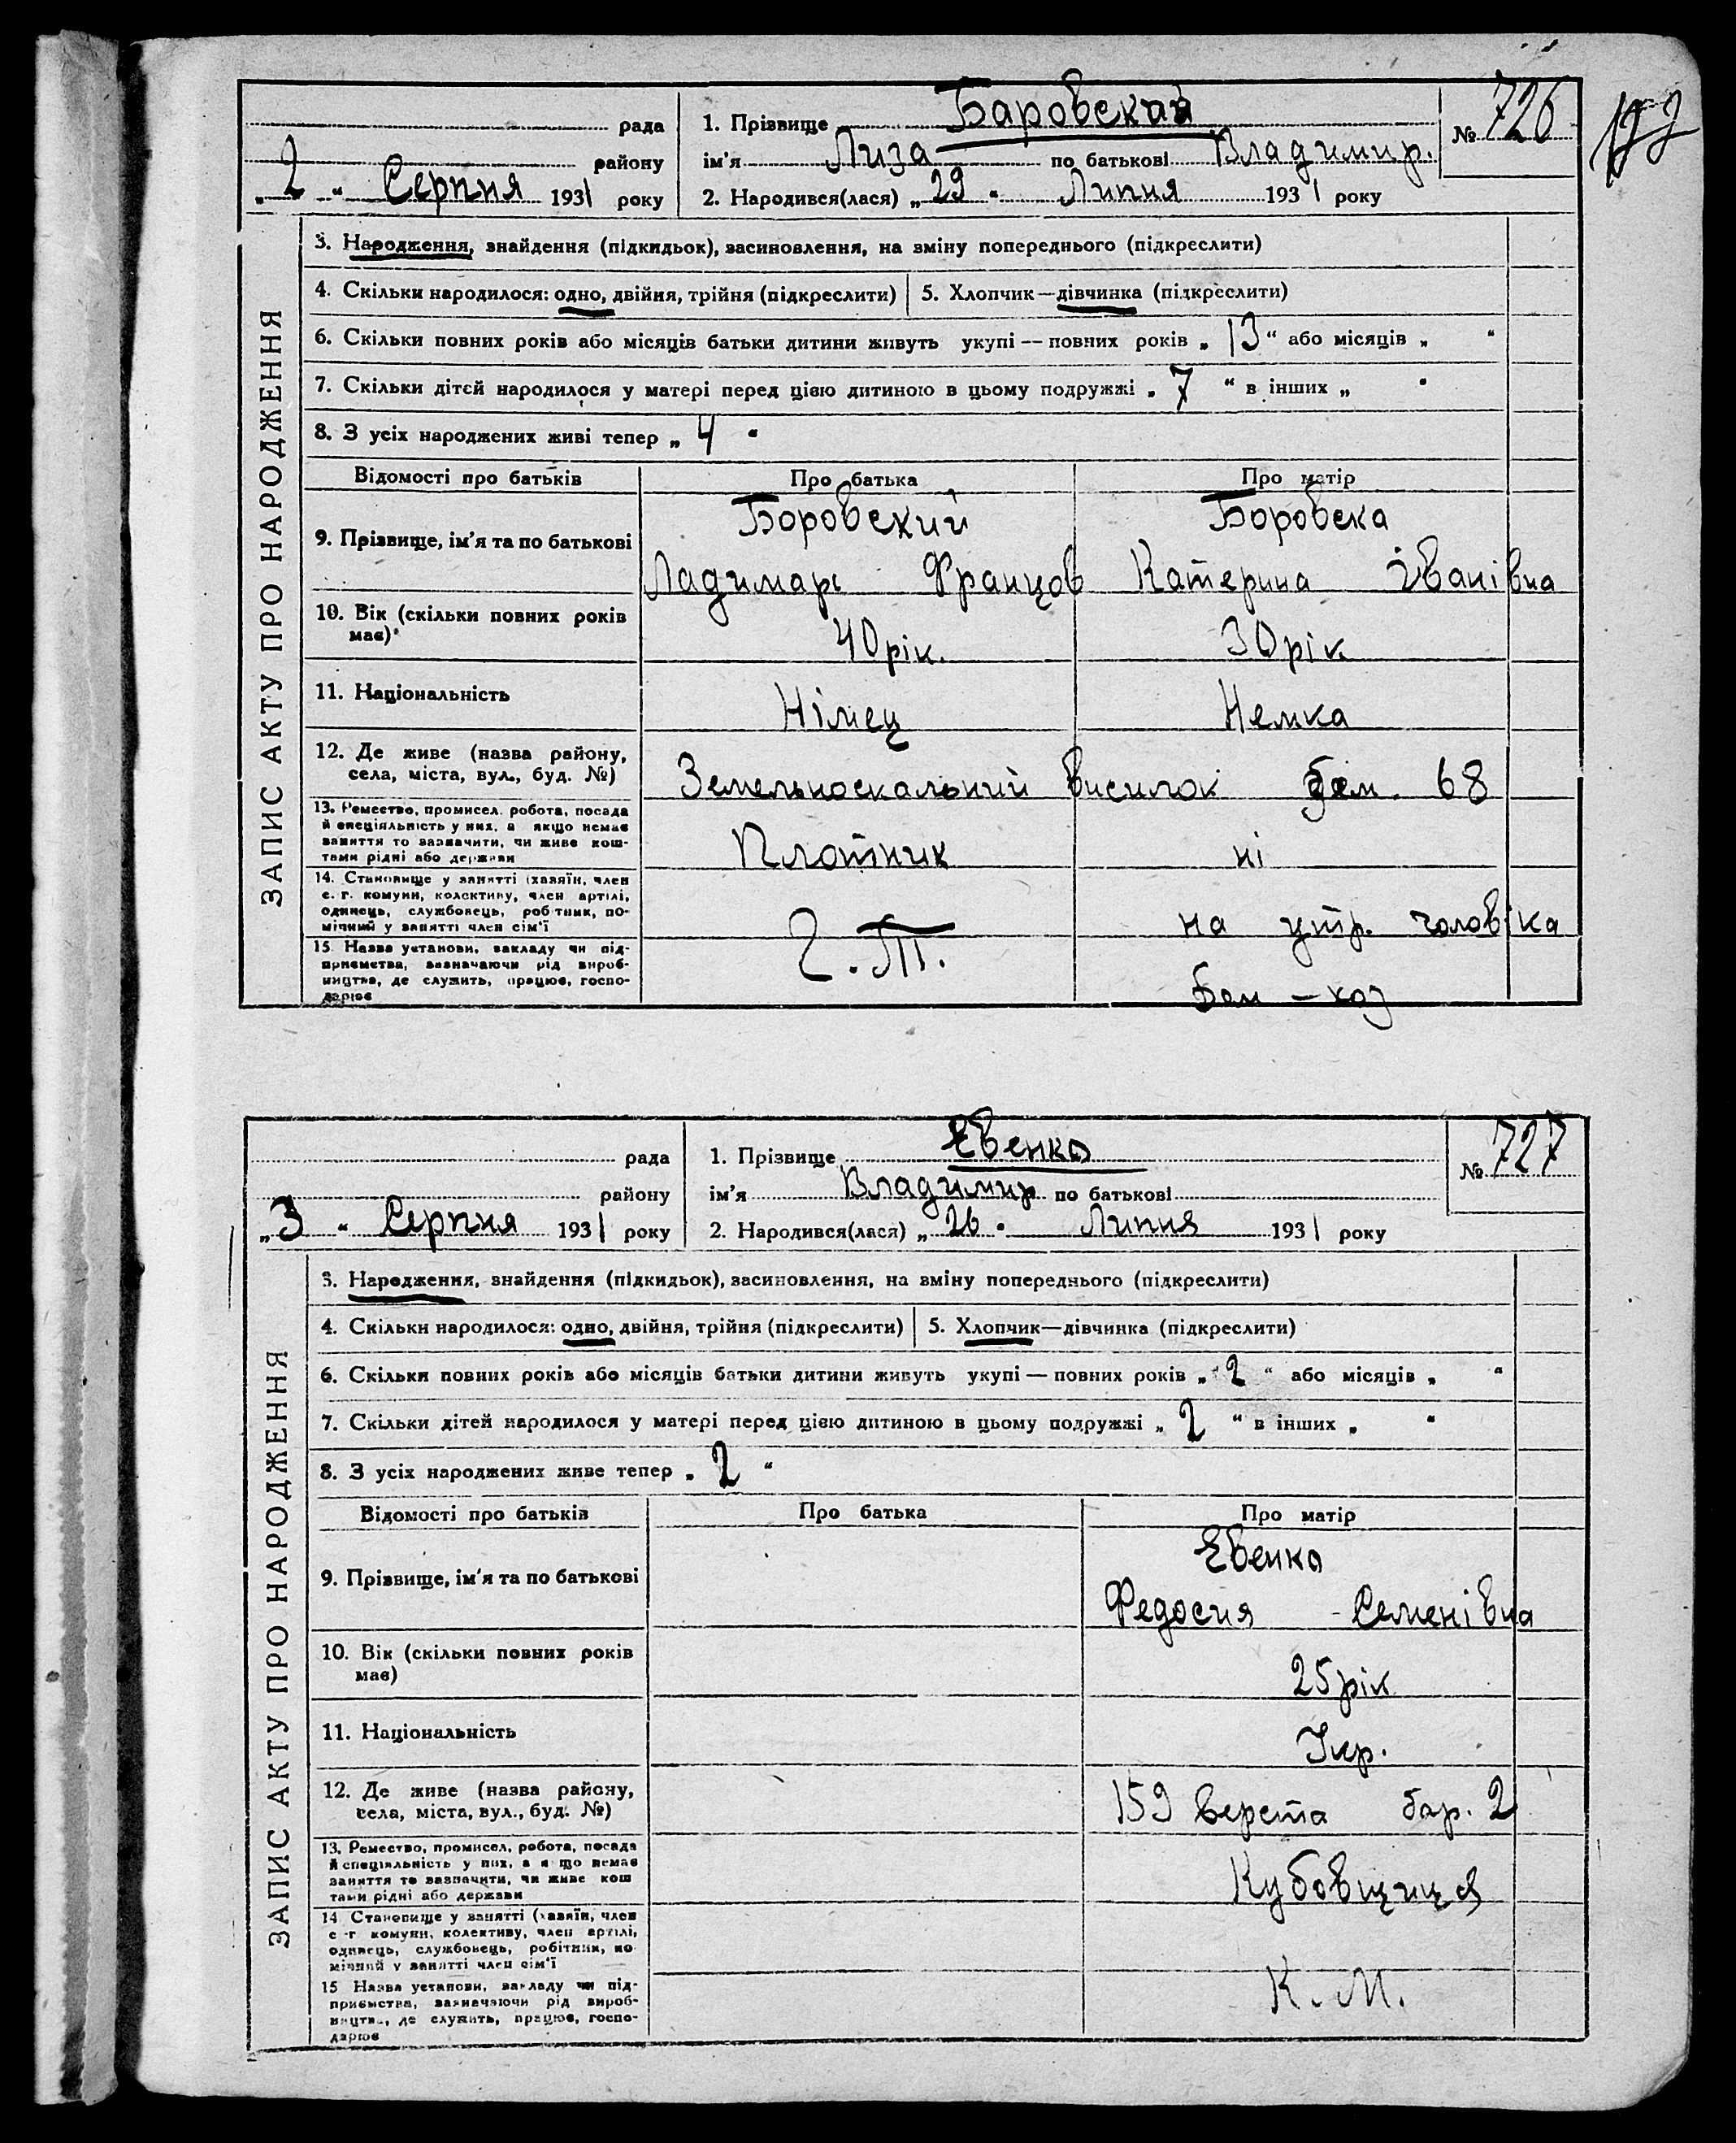 рада
району
„2“ Серпня 1931 року
1. Прізвище Баровская
ім'я Лиза по батькові Владимир.
2. Народився(лася) „29“ Липня 1931 року
№ 726
ЗАПИС АКТУ ПРО НАРОДЖЕННЯ
3. Народження, знайдення (підкидьок), засиновлення, на зміну попереднього (підкреслити)
4. Скільки народилося: одно, двійня, трійня (підкреслити) 5. Хлопчик—дівчинка (підкреслити)
6. Скільки повних років або місяців батьки дитини живуть укупі — повних років „13“ або місяців „ “
7. Скільки дітей народилося у матері перед цією дитиною в цьому подружжі „7“ в інших „ “
8. З усіх народжених живі тепер „4“
Відомості про батьків Про батька Про матір
9. Прізвище, ім'я та по батькові
Боровский Боровска
Ладимарь Францов Катерина Іванівна
10. Вік (скільки повних років
має)
40 рік. 30 рік
11. Національність Німец Немка
12. Де живе (назва району,
села, міста, вул., буд. №)
висилок 68
13. Ремество, промисел, робота, посада
й спеціяльність у них, а якщо немає
заняття то зазначити, чи живе кош-
тами рідні або держави
Плотник ні
14. Становище у занятті (хазяїн, член
с. г. комуни, колективу, член артілі,
одинець, службовець, робітник, по-
мічний у занятті член сім'ї
на утр. чоловіка
15. Назва установи, закладу чи під-
приємства, зазначаючи рід вироб-
ництва, де служить, працює, госпо-
дарює
рада
району
„3“ Серпня 1931 року
1. Прізвище Евенко
ім'я Владимир по батькові
2. Народився(лася) „26“ Липня 1931 року
№ 727
ЗАПИС АКТУ ПРО НАРОДЖЕННЯ
3. Народження, знайдення (підкидьок), засиновлення, на зміну попереднього (підкреслити)
4. Скільки народилося: одно, двійня, трійня (підкреслити) 5. Хлопчик—дівчинка (підкреслити)
6. Скільки повних років або місяців батьки дитини живуть укупі — повних років „2“ або місяців „ “
7. Скільки дітей народилося у матері перед цією дитиною в цьому подружжі „2“ в інших „ “
8. З усіх народжених живе тепер „2“
Відомості про батьків Про батька Про матір
9. Прізвище, ім'я та по батькові
Евенко
Федосия Семенівна
10. Вік (скільки повних років
має)
25 рік
11. Національність Укр.
12. Де живе (назва району,
села, міста, вул., буд. №)
159 верста бар. 2
13. Ремество, промисел, робота, посада
й спеціяльність у них, а якщо немає
заняття то зазначити, чи живе кош
тами рідні або держави
Кубовщиця
14 Становище у занятті (хазяїн, член
с-г комуни, колективу, член артілі,
одинець, службовець, робітник, по
мічний у занятті член сім'ї
15 Назва установи, закладу чи під-
приємства, зазначаючи рід вироб-
ництва, де служить, працює, госпо-
дарює
К. М.